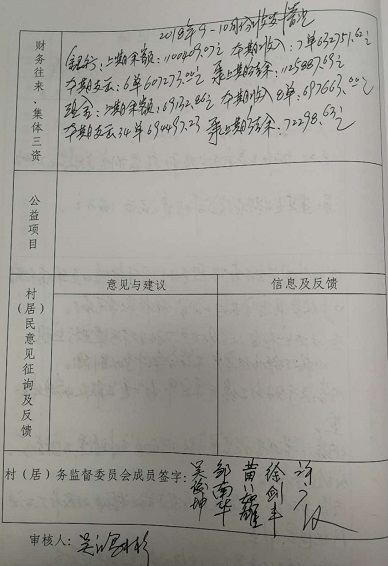 2018年9-10月份收支情况
财务往来·集体三资
银行:上期余额:100409.07元 本期收入:7单632751.62元
本期支出:6单607273.00元 累上期结余:125887.69元
现金:上期余额:69132.86元 本期收入8单:697663.00元
本期支出34单694497.23 累上期结余:72298.63元
公益项目
村(居)民意见征询及反馈
意见与建议
信息及反馈
村(居)务监督委员会成员签字:
邹南华 黄 徐剑丰 许
审核人:吴